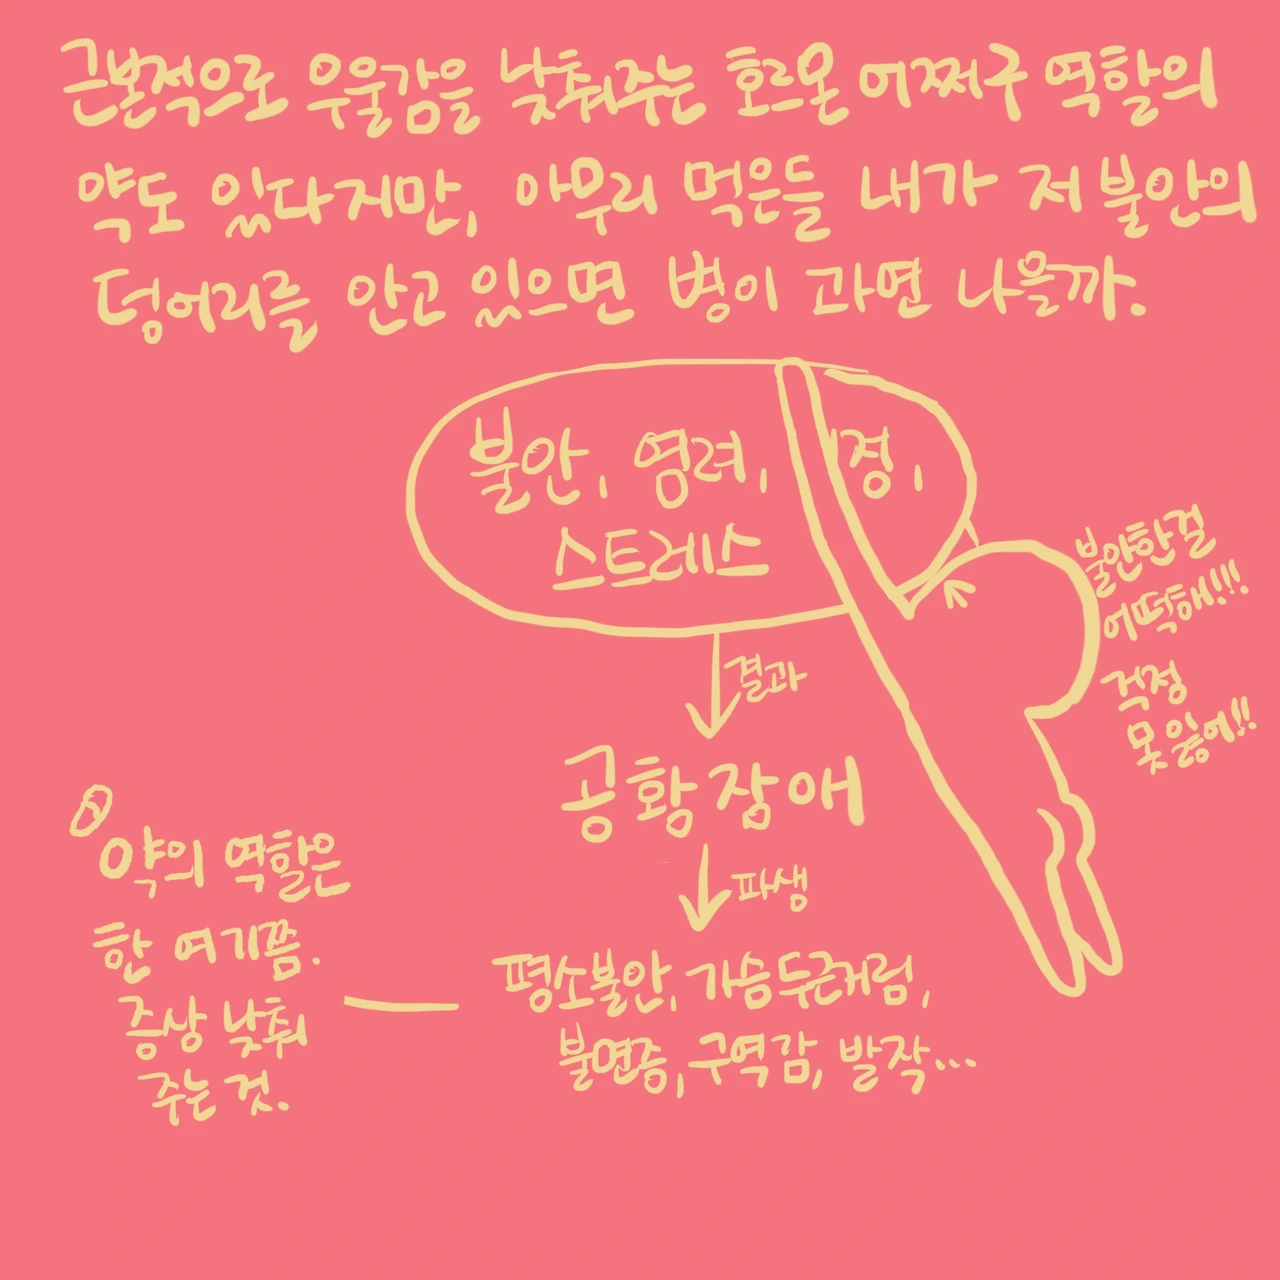 근본적으로 우울감을 낮춰주는 호르몬 어쩌구 역할의
약도 있다지만, 아무리 먹은들 내가 저 불안의
덩어리를 안고 있으면 병이 과연 나을까.
불안, 염려, 정,
스트레스
불안한걸
어떡해!!!
걱정
못 잃어!!
결과
공황장애
파생
평소불안, 가슴두근거림,
불면증, 구역감, 발작...
약의 역할은
한 여기쯤.
증상 낮춰
주는 것.